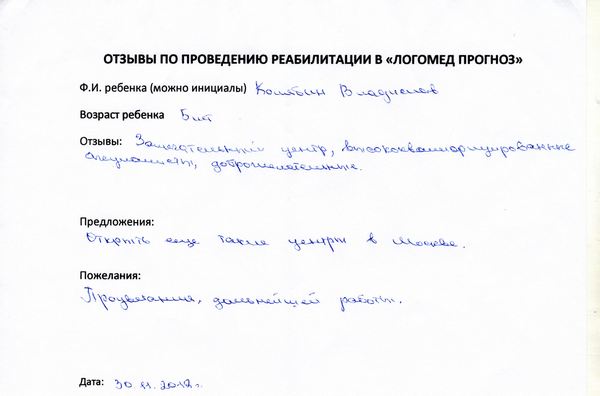 ОТЗЫВЫ ПО ПРОВЕДЕНИЮ РЕАБИЛИТАЦИИ В «ЛОГОМЕД ПРОГНОЗ»
Ф.И. ребенка (можно инициалы) Владислав
Возраст ребенка 5 лет
Отзывы: Замечательный центр, высококвалифицированные
специалисты, доброжелательные.
Предложения:
Открыть еще такие центры в Москве.
Пожелания:
Процветания, дальнейшей работы.
Дата: 30.11.2012г.